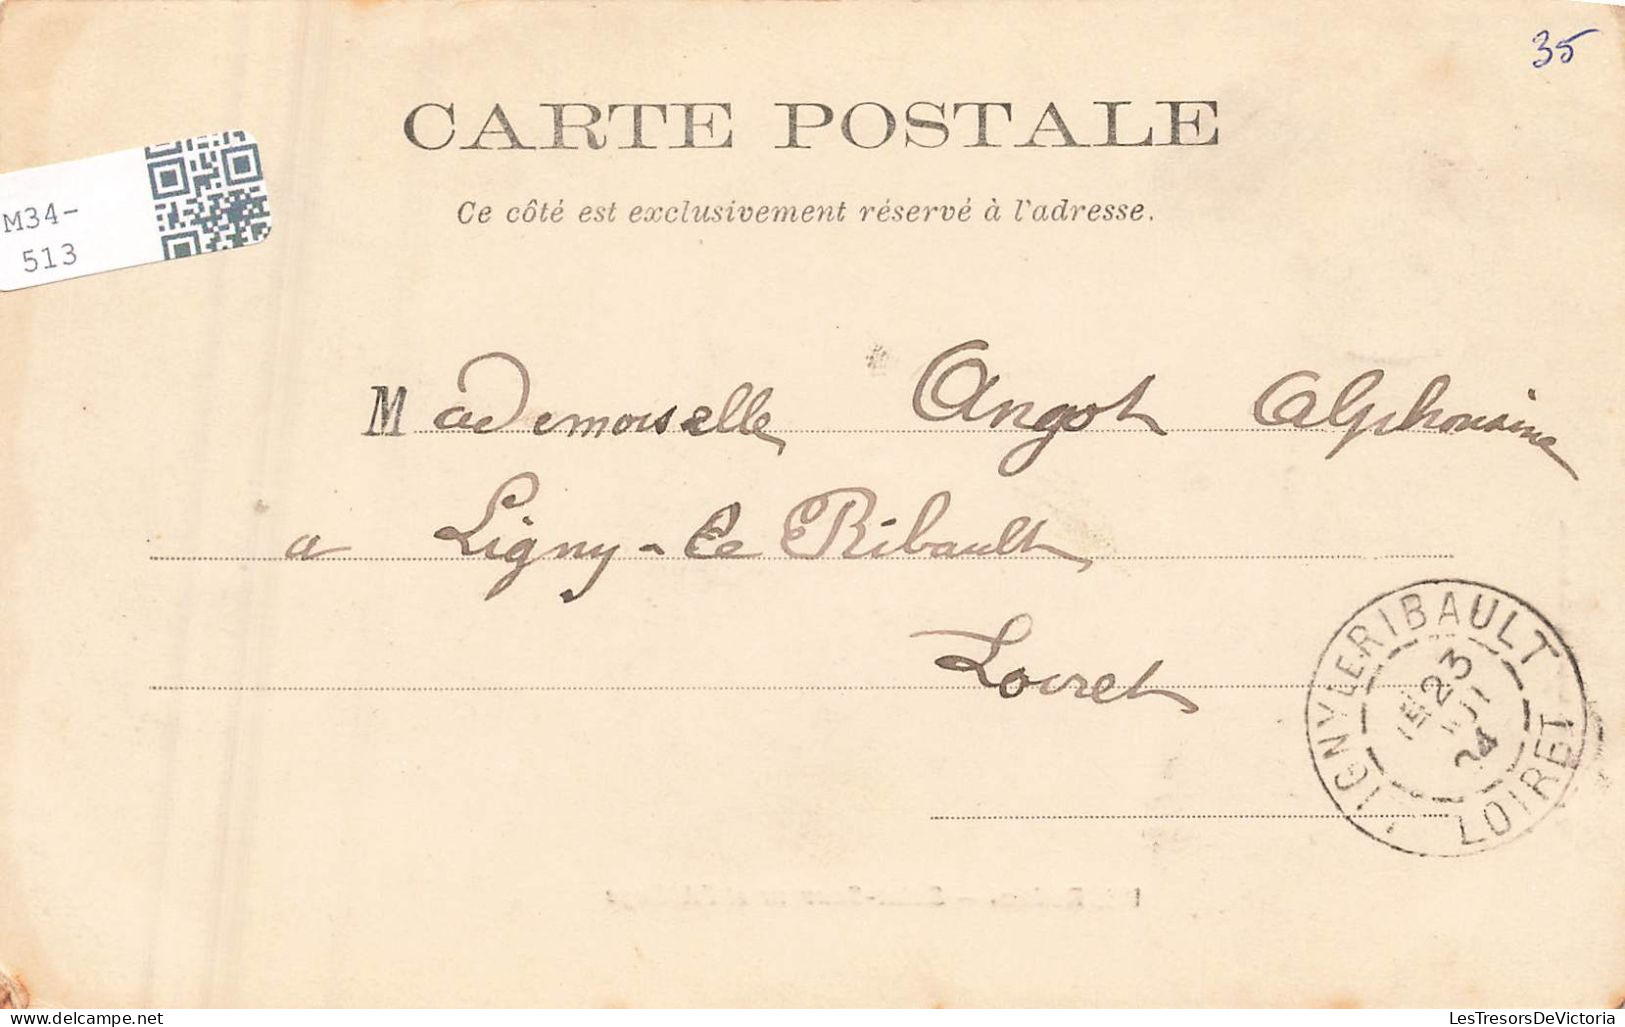 35
CARTE POSTALE
Ce côté est exclusivement réservé à l'adresse.
M34-
513
Mademoiselle Angot Alphonsine
a Ligny-le Ribault
Loiret
LIGNY LE RIBAULT
23
LOIRET
LesTresorsDeVictoria
www.delcampe.net